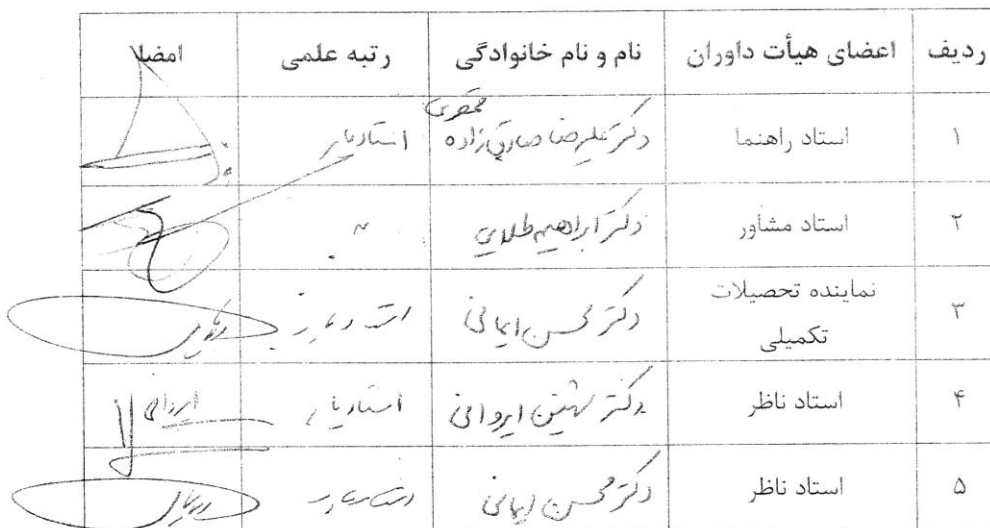 ردیف اعضای هیأت داوران نام و نام خانوادگی رتبه علمی امضا
۱ استاد راهنما دکتر علیرضا صادق زاده قمصری استادیار
۲ استاد مشاور دکتر ابراهیم طلایی 〃
۳ نماینده تحصیلات تکمیلی دکتر محسن ایمانی استادیار
۴ استاد ناظر دکتر شهین ایروانی استادیار
۵ استاد ناظر دکتر محسن ایمانی استادیار